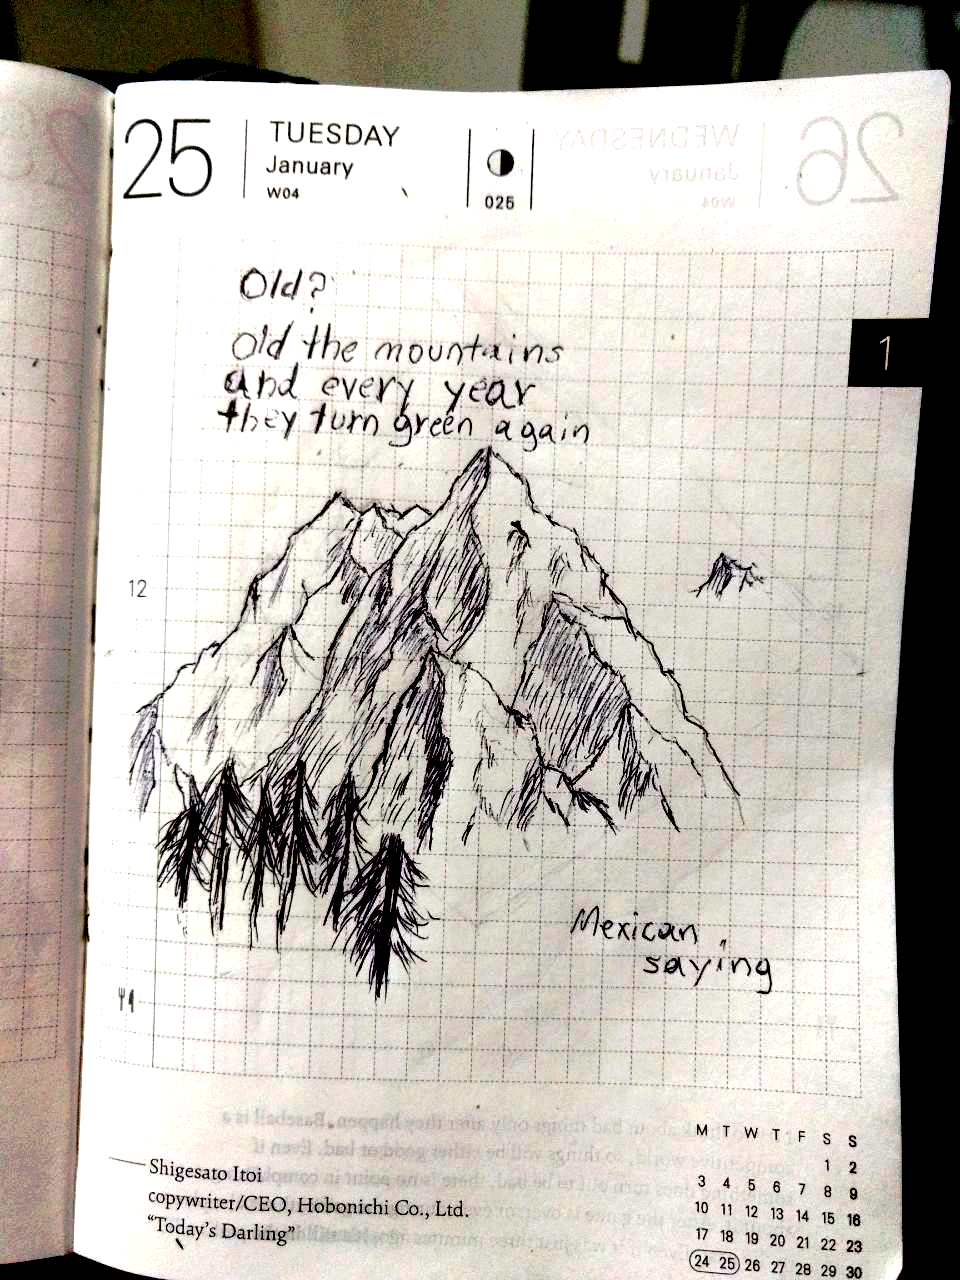 25
TUESDAY
January
W04
025
Old?
Old the mountains
and every year
they turn green again
1
12
Mexican
saying
Shigesato Itoi
copywriter/CEO, Hobonichi Co., Ltd.
“Today's Darling”
M T W T F S S
1 2
3 4 5 6 7 8 9
10 11 12 13 14 15 16
17 18 19 20 21 22 23
24 25 26 27 28 29 30